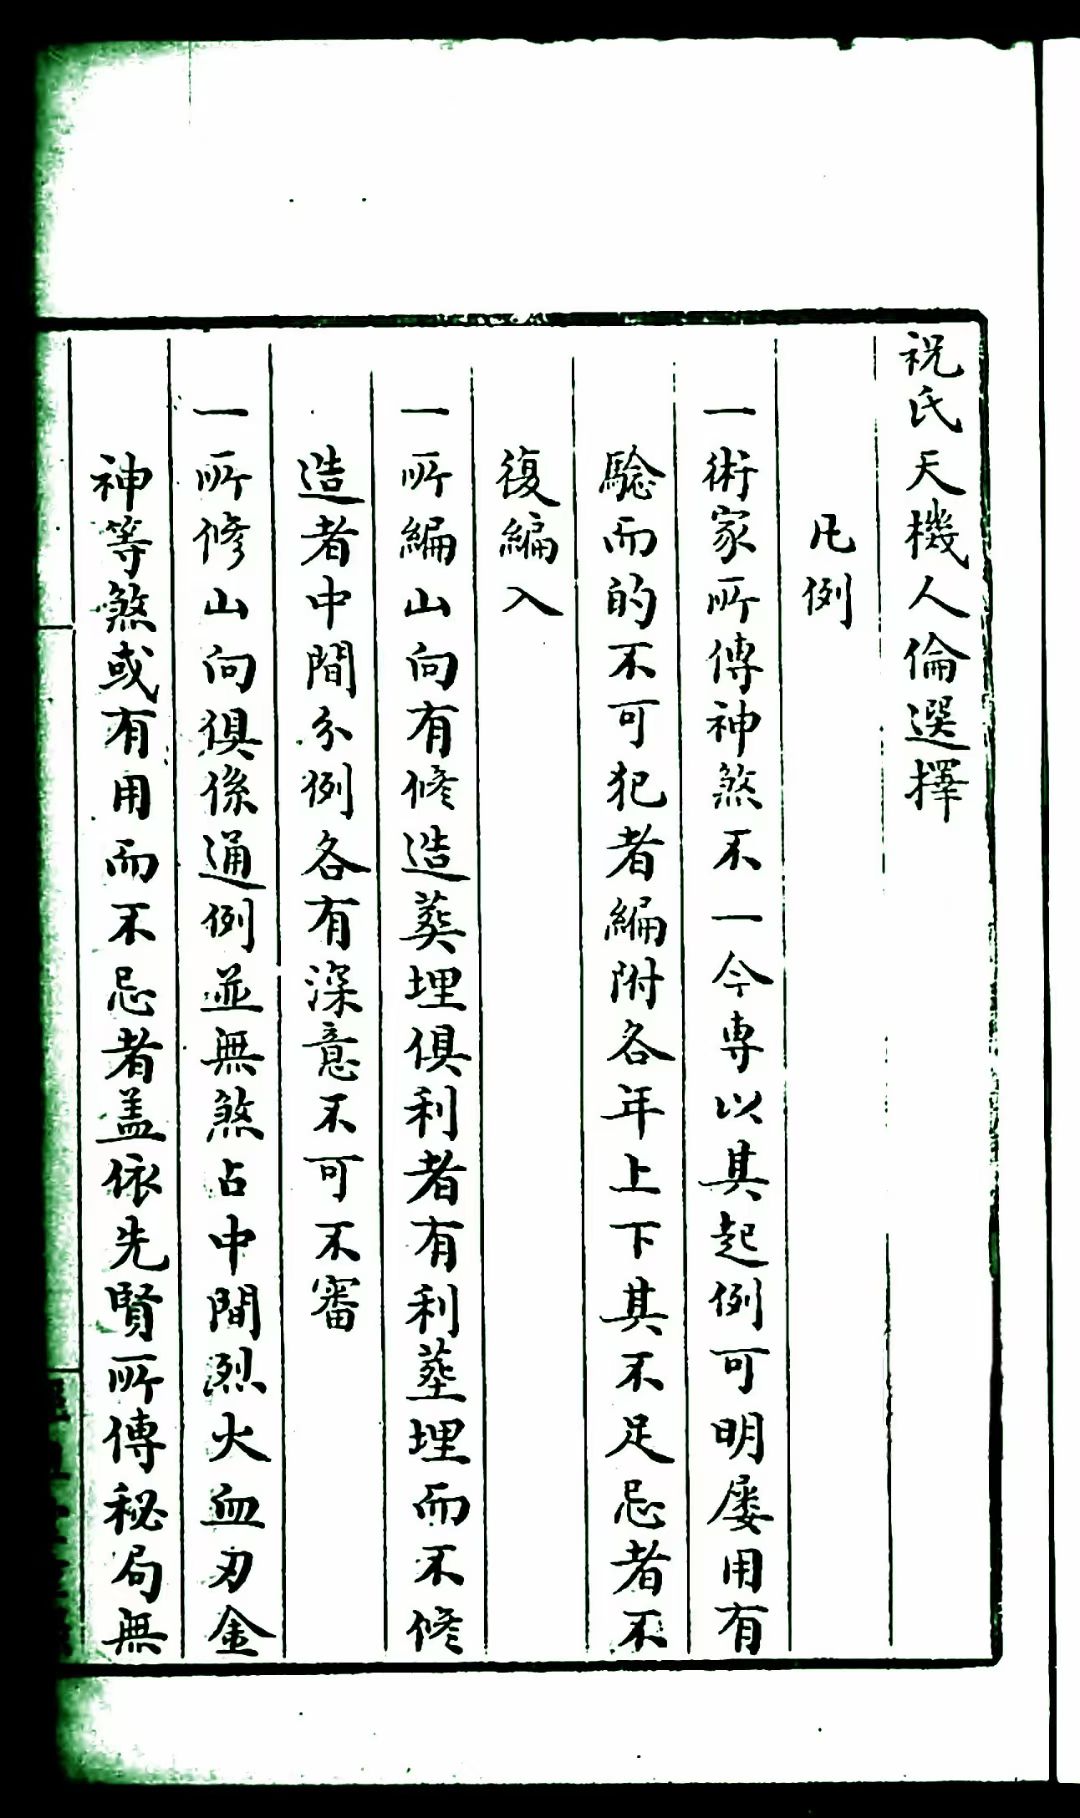 祝氏天機人倫選擇
凡例
一術家所傳神煞不一今專以其起例可明屡用有
騐而的不可犯者編附各年上下其不足忌者不
復編入
一所編山向有修造葬埋俱利者有利塟埋而不修
造者中間分例各有深意不可不審
一所修山向俱係通例並無煞占中間烈火血刃金
神等煞或有用而不忌者盖依先賢所傳秘局無